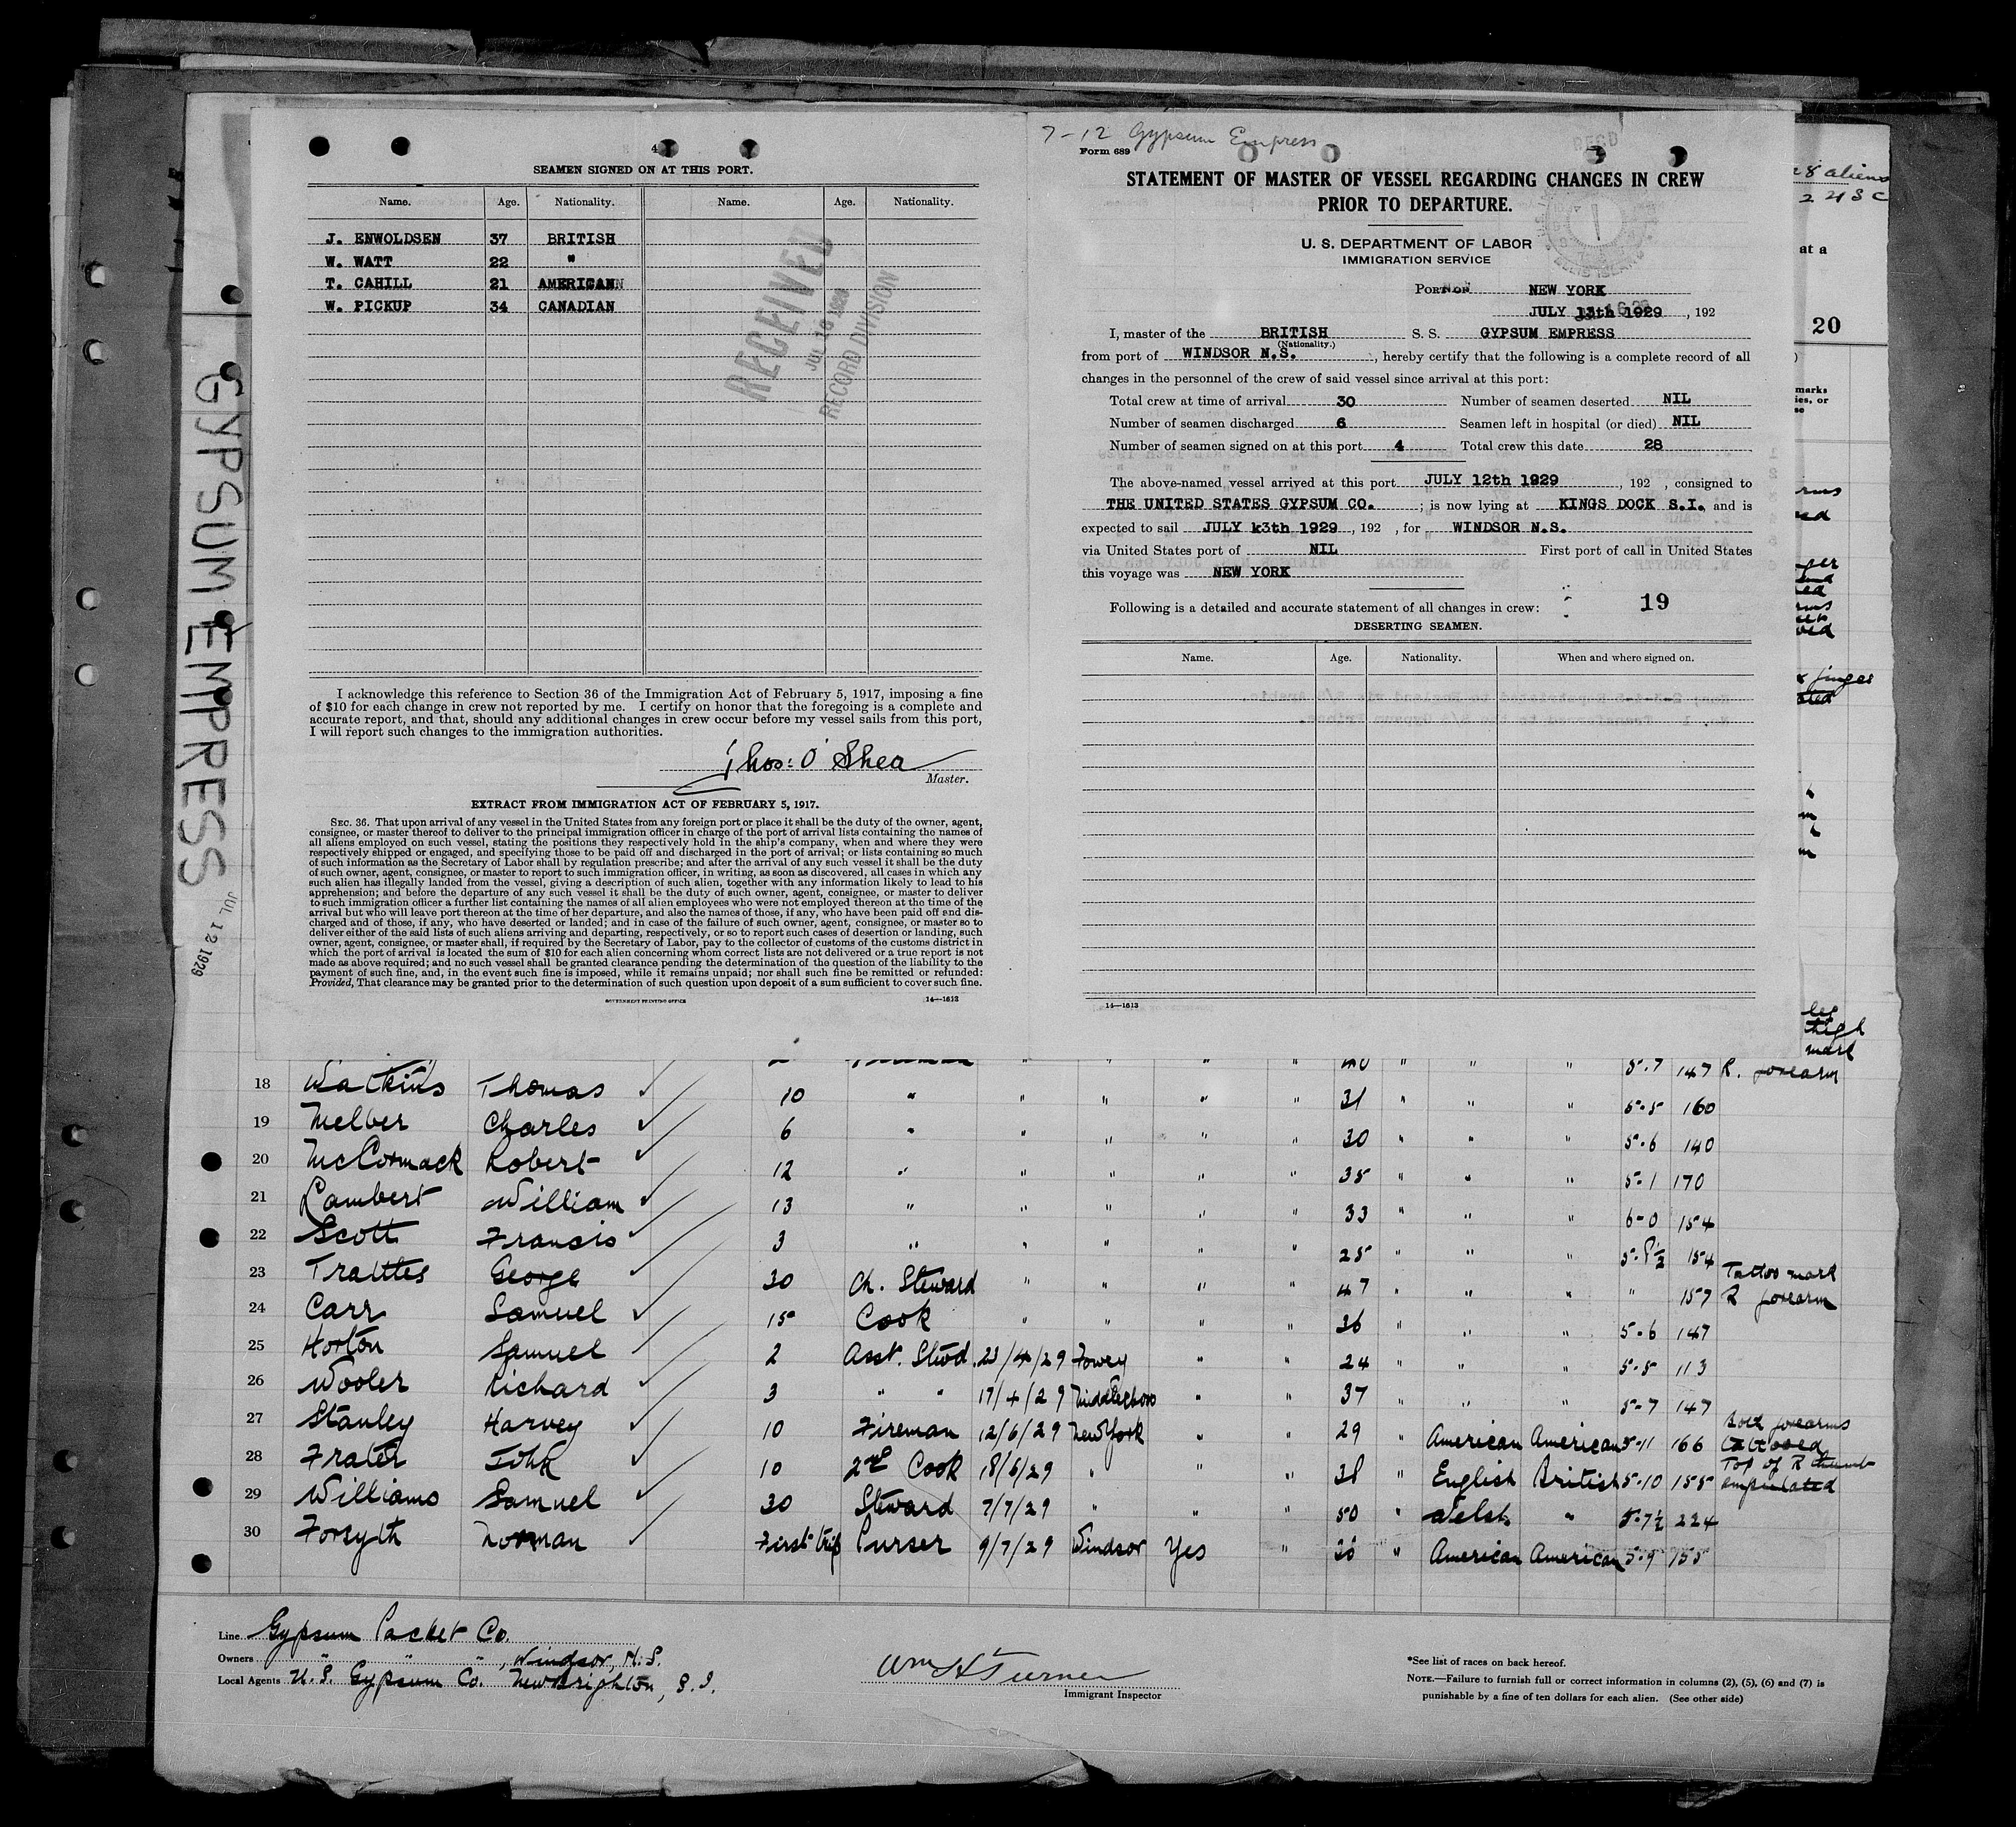 4
SEAMEN SIGNED ON AT THIS PORT.
Name. Age. Nationality. Name. Age. Nationality.
J. ENWOLDSEN 37 BRITISH
W. WATT 22 "
T. CAHILL 21 AMERICAN
W. PICKUP 34 CANADIAN
RECEIVED
JUL 16 1929
RECORD DIVISION
I acknowledge this reference to Section 36 of the Immigration Act of February 5, 1917, imposing a fine
of $10 for each change in crew not reported by me. I certify on honor that the foregoing is a complete and
accurate report, and that, should any additional changes in crew occur before my vessel sails from this port,
I will report such changes to the immigration authorities.
Thos: O'Shea
Master.
EXTRACT FROM IMMIGRATION ACT OF FEBRUARY 5, 1917.
SEC. 36. That upon arrival of any vessel in the United States from any foreign port or place it shall be the duty of the owner, agent,
consignee, or master thereof to deliver to the principal immigration officer in charge of the port of arrival lists containing the names of
all aliens employed on such vessel, stating the positions they respectively hold in the ship's company, when and where they were
respectively shipped or engaged, and specifying those to be paid off and discharged in the port of arrival; or lists containing so much
of such information as the Secretary of Labor shall by regulation prescribe; and after the arrival of any such vessel it shall be the duty
of such owner, agent, consignee, or master to report to such immigration officer, in writing, as soon as discovered, all cases in which any
such alien has illegally landed from the vessel, giving a description of such alien, together with any information likely to lead to his
apprehension; and before the departure of any such vessel it shall be the duty of such owner, agent, consignee, or master to deliver
to such immigration officer a further list containing the names of all alien employees who were not employed thereon at the time of the
arrival but who will leave port thereon at the time of her departure, and also the names of those, if any, who have been paid off and dis-
charged and of those, if any, who have deserted or landed; and in case of the failure of such owner, agent, consignee, or master so to
deliver either of the said lists of such aliens arriving and departing, respectively, or so to report such cases of desertion or landing, such
owner, agent, consignee, or master shall, if required by the Secretary of Labor, pay to the collector of customs of the customs district in
which the port of arrival is located the sum of $10 for each alien concerning whom correct lists are not delivered or a true report is not
made as above required; and no such vessel shall be granted clearance pending the determination of the question of the liability to the
payment of such fine, and, in the event such fine is imposed, while it remains unpaid; nor shall such fine be remitted or refunded:
Provided, That clearance may be granted prior to the determination of such question upon deposit of a sum sufficient to cover such fine.
GOVERNMENT PRINTING OFFICE 14—1613
7-12 Gypsum Empress
Form 689
REC'D
STATEMENT OF MASTER OF VESSEL REGARDING CHANGES IN CREW
PRIOR TO DEPARTURE.
U. S. DEPARTMENT OF LABOR
IMMIGRATION SERVICE
ELLIS ISLAND
PORT OF NEW YORK
JULY 13th 1929, 192
I, master of the BRITISH S. S. GYPSUM EMPRESS
(Nationality.)
from port of WINDSOR N.S., hereby certify that the following is a complete record of all
changes in the personnel of the crew of said vessel since arrival at this port:
Total crew at time of arrival 30 Number of seamen deserted NIL
Number of seamen discharged 6 Seamen left in hospital (or died) NIL
Number of seamen signed on at this port 4 Total crew this date 28
The above-named vessel arrived at this port JULY 12th 1929, 192 , consigned to
THE UNITED STATES GYPSUM CO. ; is now lying at KINGS DOCK S.I. and is
expected to sail JULY k3th 1929, 192 , for WINDSOR N.S.
via United States port of NIL First port of call in United States
this voyage was NEW YORK
Following is a detailed and accurate statement of all changes in crew: 19
DESERTING SEAMEN.
Name. Age. Nationality. When and where signed on.
14—1613
28 aliens
2 USC
at a
20
marks
ies, or
se
finger
leg
thigh
mark
GYPSUM EMPRESS
JUL 12 1929
" " " " " " " 5.7 147 R. forearm
18 Watkins Thomas 10 " " " " " 31 " " " 5.5 160
19 Melber Charles 6 " " " " " 30 " " " 5.6 140
20 McCormack Robert 12 " " " " " 35 " " " 5.1 170
21 Lambert William 13 " " " " " 33 " " " 6-0 154
22 Scott Francis 3 " " " " " 25 " " " 5.8½ 154
23 Trattles George 30 Ch. Steward " " " " 47 " " " " 157 Tattoo mark R forearm
24 Carr Samuel 15 Cook " " " " 36 " " " 5.6 147
25 Horton Samuel 2 Asst. Stwd. 23/4/29 Fowey " " 24 " " " 5.5 113
26 Wooler Richard 3 " " 17/4/29 Middlesboro " " 37 " " " 5-7 147
27 Stanley Harvey 10 Fireman 12/6/29 New York " " 29 " American American 5.11 166 Both forearms tattooed
28 Frater John 10 2nd Cook 18/6/29 " " " 38 " English British 5.10 155 Top of R thumb amputated
29 Williams Samuel 30 Steward 7/7/29 " " " 50 " Welsh " 5.7½ 224
30 Forsyth Norman First trip Purser 9/7/29 Windsor Yes " 36 " American American 5.9 155
Line Gypsum Packet Co.
Owners " " " , Windsor, N.S.
Local Agents U.S. Gypsum Co. New Brighton, S.I.
Wm H Turner
Immigrant Inspector
*See list of races on back hereof.
NOTE.—Failure to furnish full or correct information in columns (2), (5), (6) and (7) is
punishable by a fine of ten dollars for each alien. (See other side)